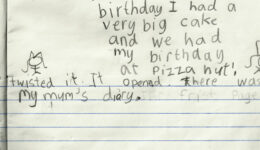 birthday I had a
very big cake
and we had
my birthday
at pizza hut!
twisted it. It opened. there was
my mum's diary.